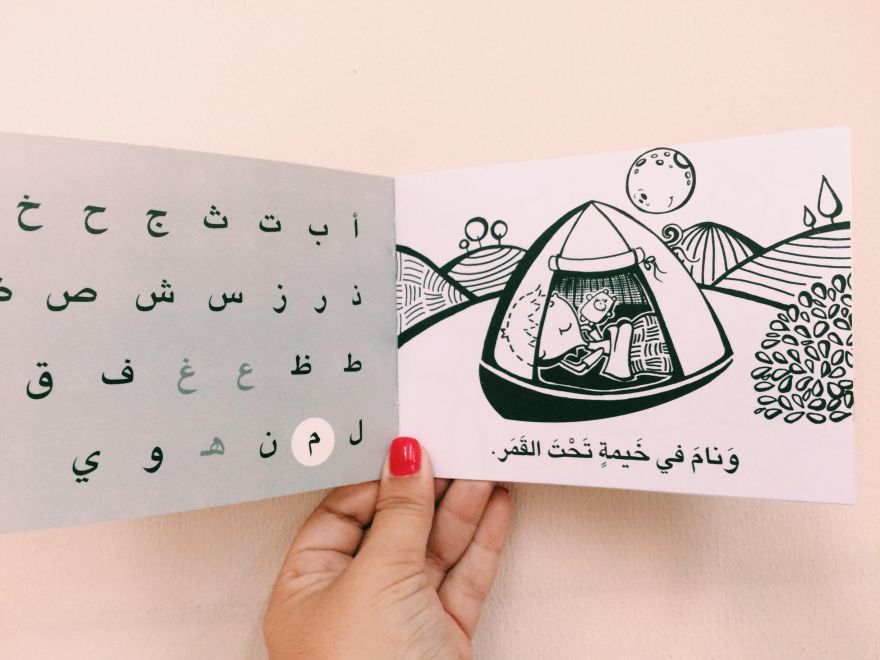 وَنامَ في خَيمةٍ تَحْتَ القَمَر.
أ ب ت ث ج ح خ
ذ ر ز س ش ص
ط ظ ع غ ف ق
ل م ن هـ و ي